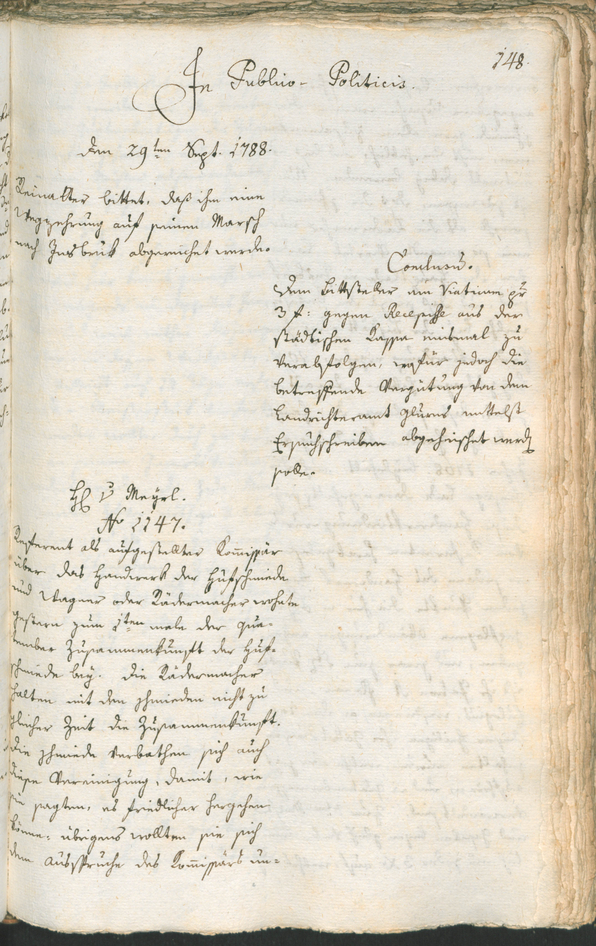 148.
In Publico-Politicis.
den 29ten Sept. 1788.
Reinalter bittet, daß ihm eine
Wegzehrung auf seinen Marsch
nach Insbruk abgereichet werde.
Conclusū.
Dem Bittsteller ein Viaticum pr
3 f: gegen Recepisse aus der
städtischen Kassa einsmal zu
verabfolgen, wofür jedoch die
betreffende Vergütung von dem
Landrichteramt Glurns mittelst
Ersuchschreiben abgeheischet werdē
solle.
H v Meÿrl.
No 1147.
Referent als aufgestellter Kom̄issär
über das Handwerk der Hufschmiede
und Wagner oder Rädermacher wohnte
gestern zum 1ten male der Qua-
tember Zusammenkunft der Huf-
schmiede beÿ. Die Rädermacher
halten mit den Schmieden nicht zu
gleicher Zeit die Zusammenkunft.
Die Schmiede verbathen sich auch
diese Vereinigung, damit, wie
sie sagten, es friedlicher hergehen
könne: übrigens wollten sie sich
dem Ausspruche des Kom̄issärs un-